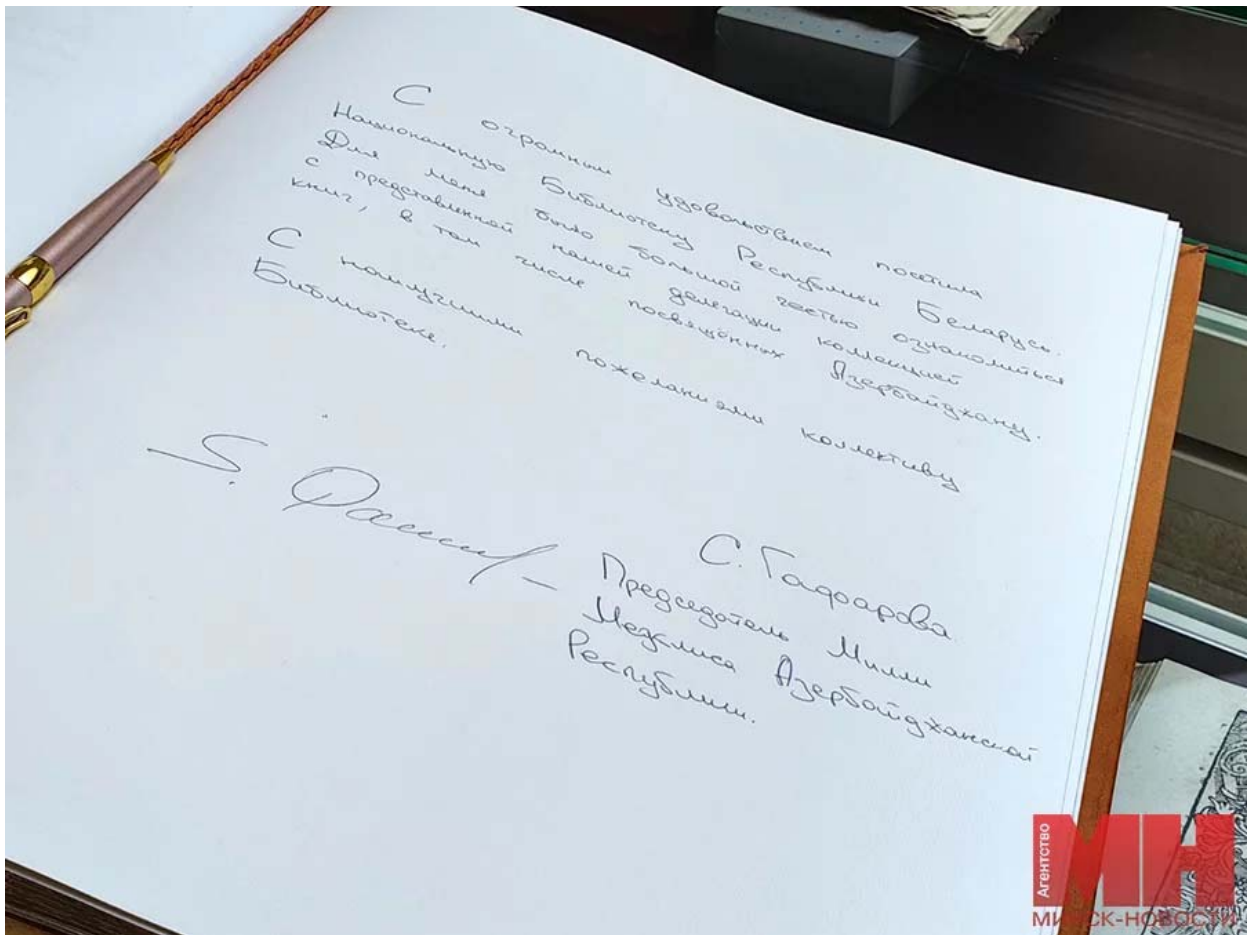 С огромным удовольствием посетила
Национальную Библиотеку Республики Беларусь.
Для меня было большой честью ознакомиться
с представленной нашей делегации коллекцией
книг, в том числе посвящённых Азербайджану.
С наилучшими пожеланиями коллективу
Библиотеки.
S.
С. Гафарова
Председатель Милли
Меджлиса Азербайджанской
Республики.
Агентство
МН
МИНСК-НОВОСТИ